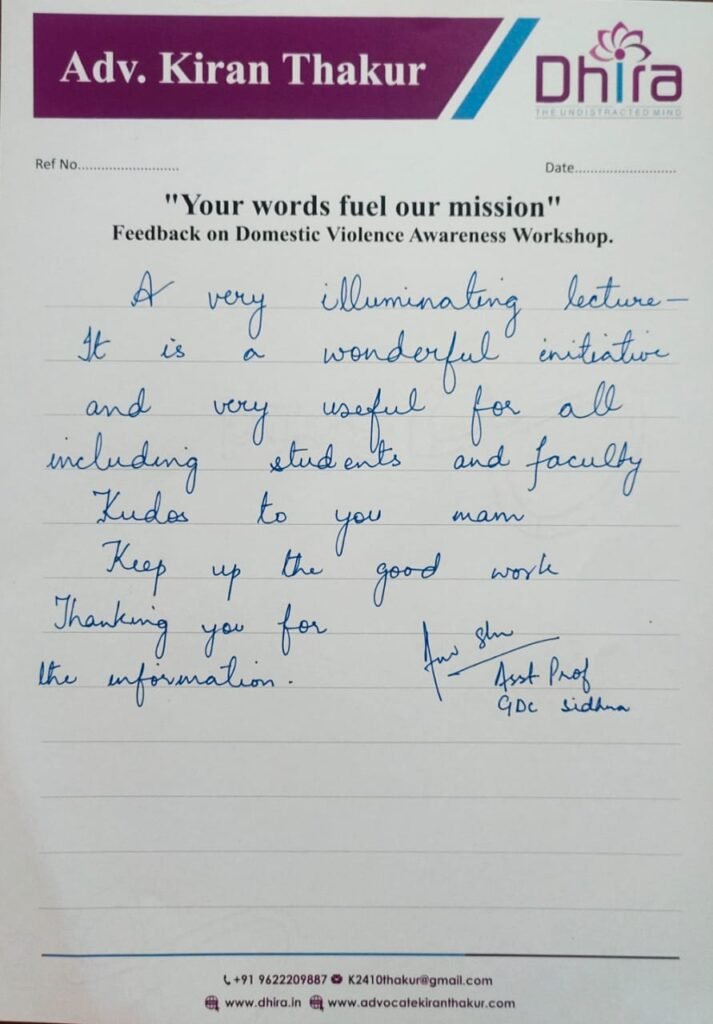 Adv. Kiran Thakur
Dhira
THE UNDISTRACTED MIND
Ref No..........................
Date..........................
"Your words fuel our mission"
Feedback on Domestic Violence Awareness Workshop.
A very illuminating lecture-
It is a wonderful initiative
and very useful for all
including students and faculty
Kudos to you mam
Keep up the good work
Thanking you for
the information.
Asst Prof
GDC Sidhra
+91 9622209887 K2410thakur@gmail.com
www.dhira.in www.advocatekiranthakur.com